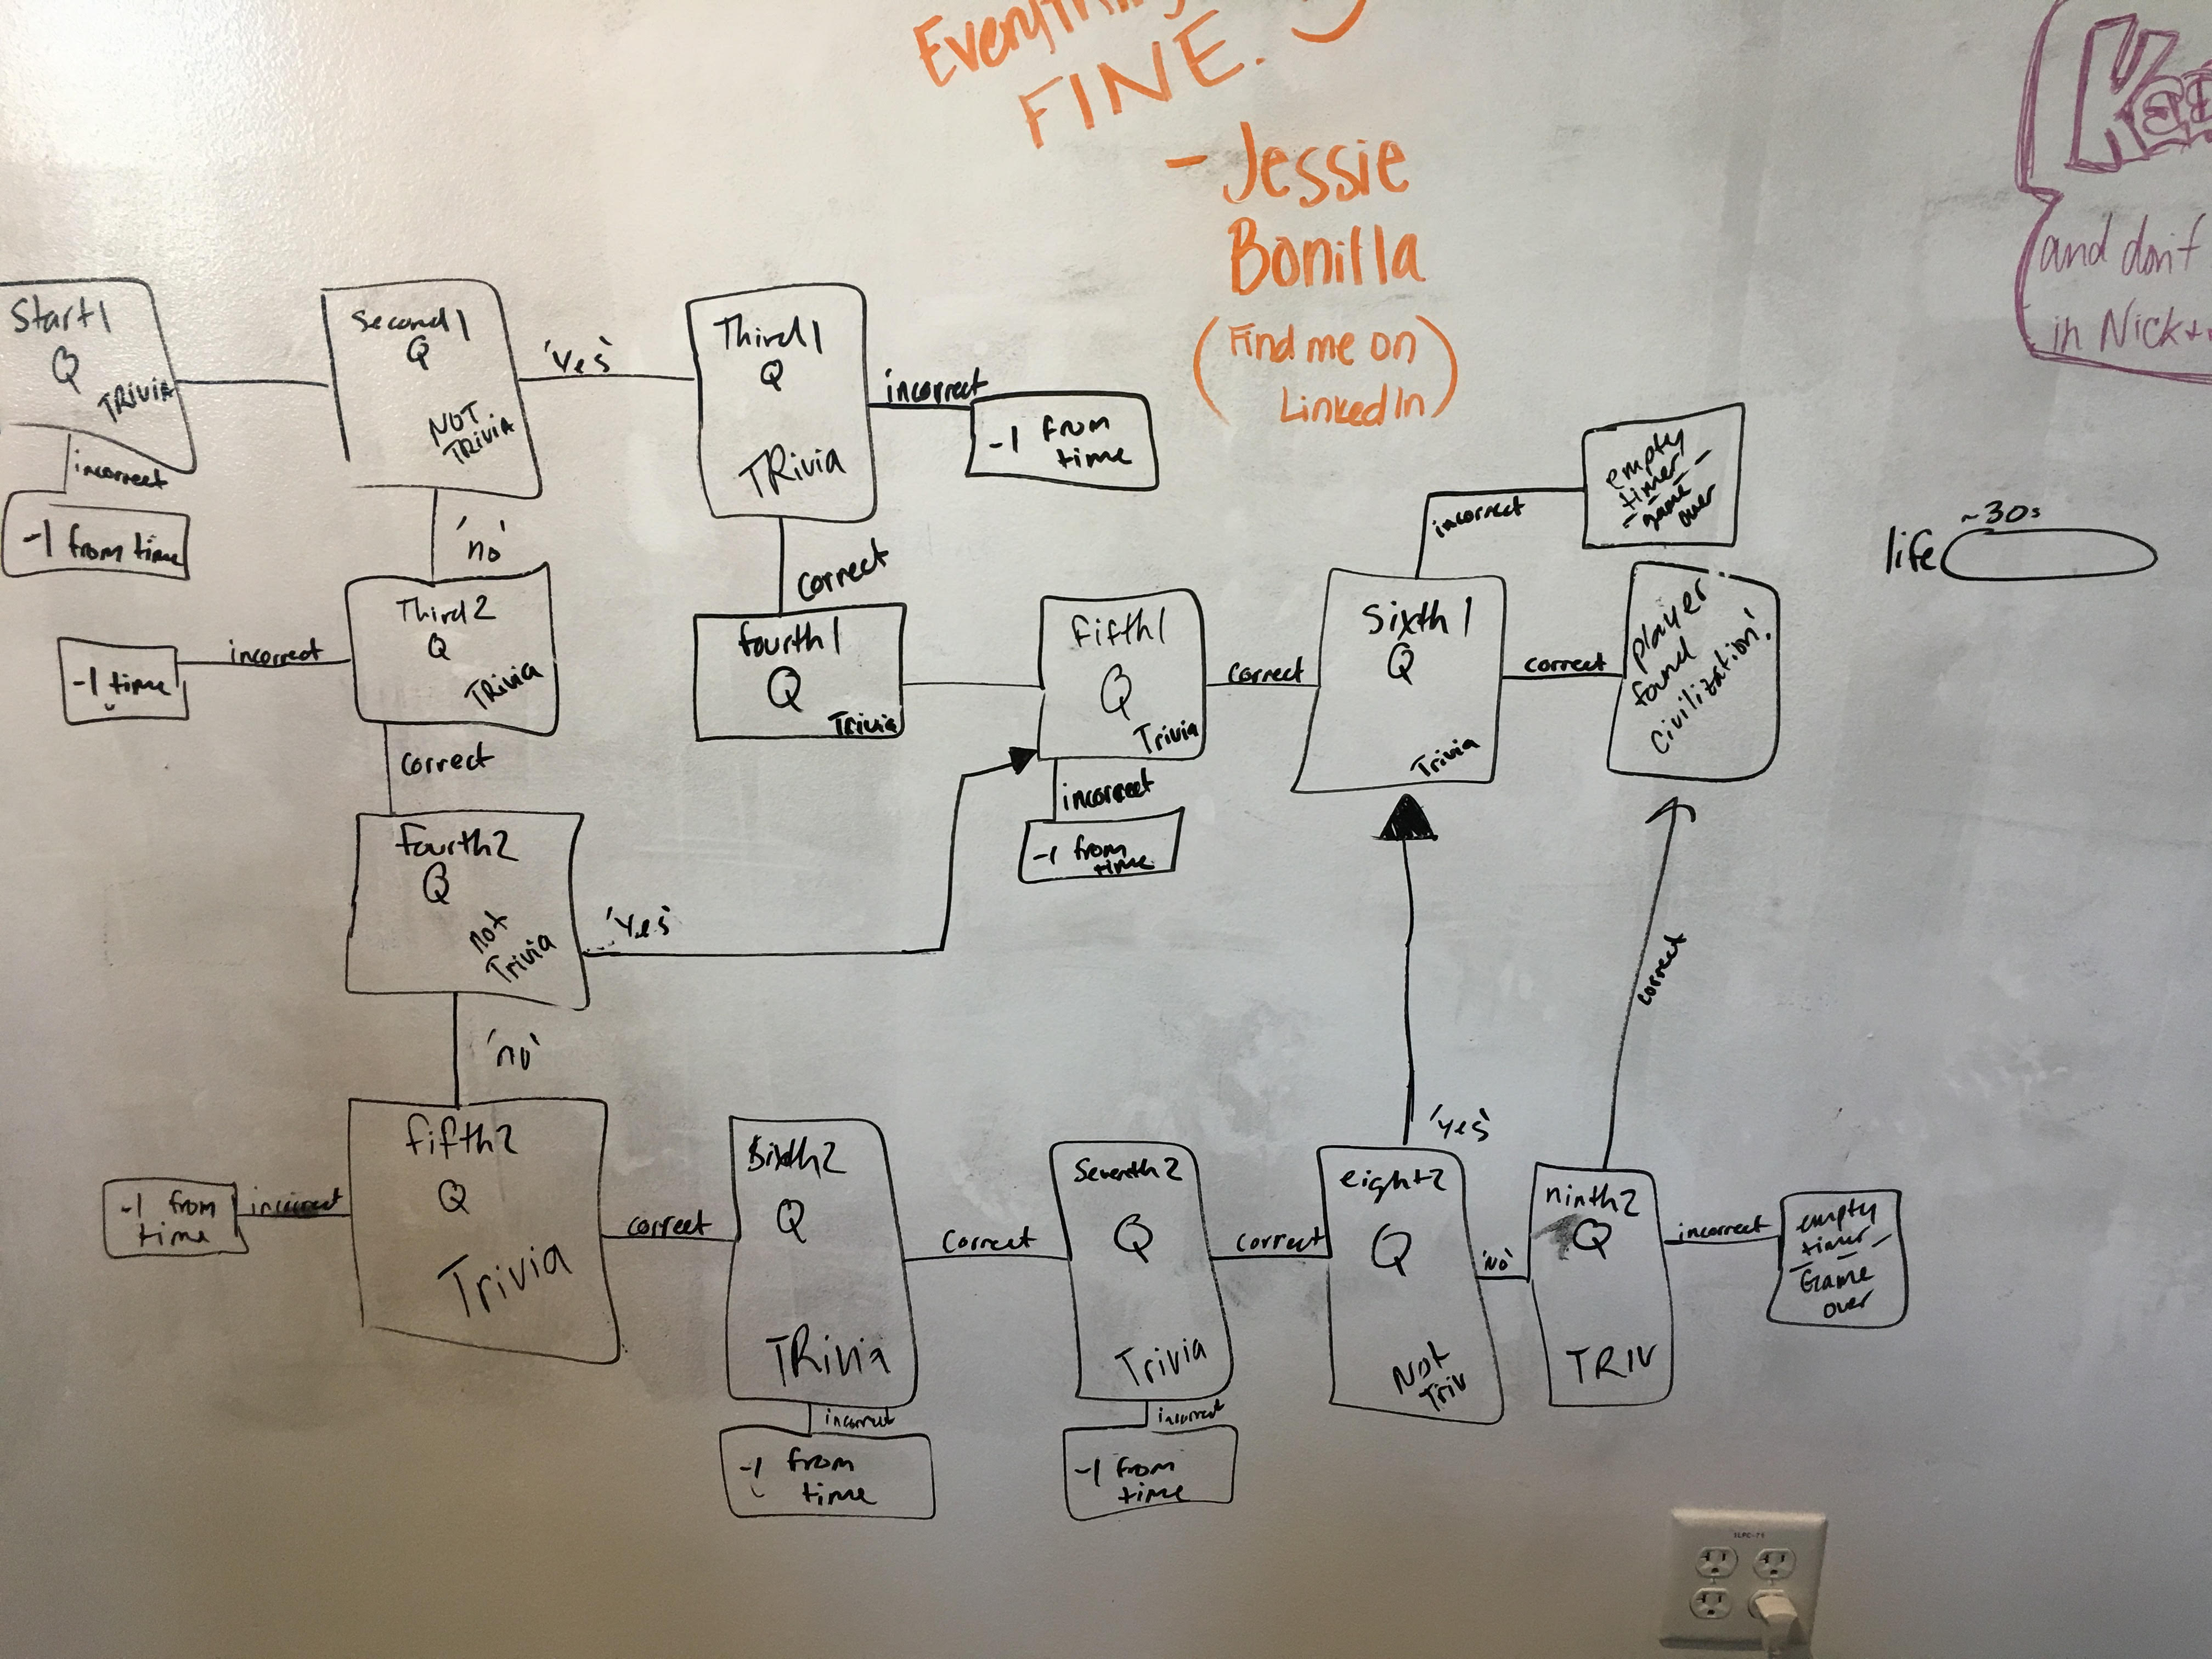 FINE.
- Jessie
Bonilla
(Find me on
LinkedIn)
and don't
in Nick
Start1
Q
TRIVIA
incorrect
-1 from time
Second1
Q
NOT
TRIVIA
'Yes'
'no'
Third1
Q
TRivia
incorrect
-1 from
time
correct
Third2
Q
TRivia
incorrect
-1 time
correct
fourth1
Q
Trivia
fifth1
Q
Trivia
correct
incorrect
-1 from
time
Sixth1
Q
Trivia
incorrect
empty
timer -
- game
over
correct
player
found
civilization!
life
~30s
fourth2
Q
not
Trivia
'Yes'
'no'
fifth2
Q
Trivia
incorrect
-1 from
time
correct
Sixth2
Q
TRivia
incorrect
-1 from
time
correct
Seventh2
Q
Trivia
incorrect
-1 from
time
correct
eight2
Q
Not
Triv
'Yes'
'No'
ninth2
Q
TRIV
correct
incorrect
empty
timer -
Game
over